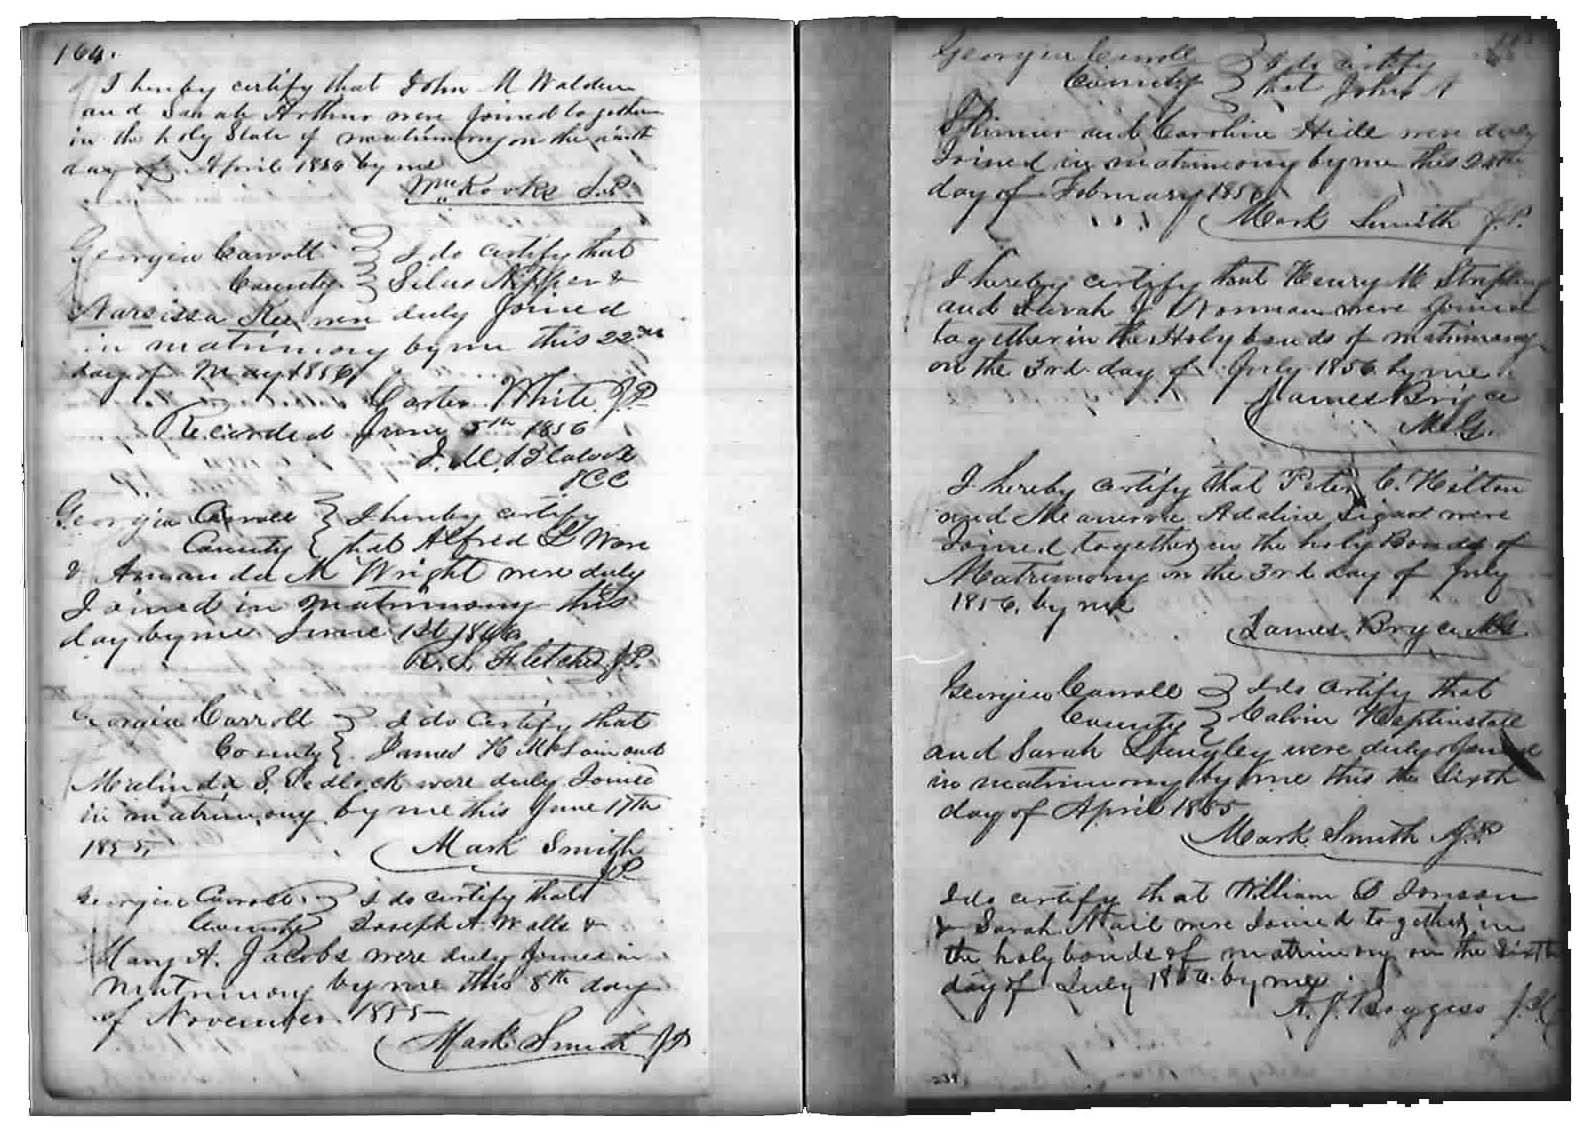 164.
I hereby certify that John M Walden
and Sarah Arthur were joined together
in the holy State of matrimony on the ninth
day of April 1856 by me
Wm Rooks J.P.
Georgia Carroll } I do certify that
County } Silas Nipper &
Narsissa Key were duly joined
in matrimony by me this 22nd
day of May 1856
Carter White J.P.
Recorded June 5th 1856
J. M. Blalock
CCC
Georgia Carroll } I hereby certify
County } that Alfred G Ware
& Amanda M Wright were duly
Joined in matrimony this
day by me June 1st
R. S. Fletcher J.P.
Georgia Carroll } I do certify that
County } James H McLain and
Malinda S. Sedlock were duly Joined
in matrimony by me this June 17th
1855
Mark Smith
J.P.
Georgia Carroll } I do certify that
County } Joseph A Walls &
Mary A. Jacobs were duly joined in
matrimony by me this 8th day
of November 1855
Mark Smith J.P.
Georgia Carroll } I do certify
County } that John A
and Caroline were duly
Joined in matrimony by me this
day of February 1856
Mark Smith J.P.
I hereby certify that Henry M Stripling
and Sarah J Wornum were joined
together in the Holy bonds of matrimony
on the 3rd day of July 1856 by me
James Bryce
M.G.
I hereby certify that Peter C. Hilton
and Adaline were
Joined together in the holy Bonds of
Matrimony on the 3rd day of July
1856, by me
James Bryce MG
Georgia Carroll } I do certify that
County } Calvin Heptinstall
and Sarah Langley were duly Joined
in matrimony by me this the Sixth
day of April 1855
Mark Smith J.P.
I do certify that William D Jonson
& Sarah Nail were Joined together in
the holy bonds of matrimony on the Sixth
day of July 1856 by me
A. J. Boggess J.I.C
239